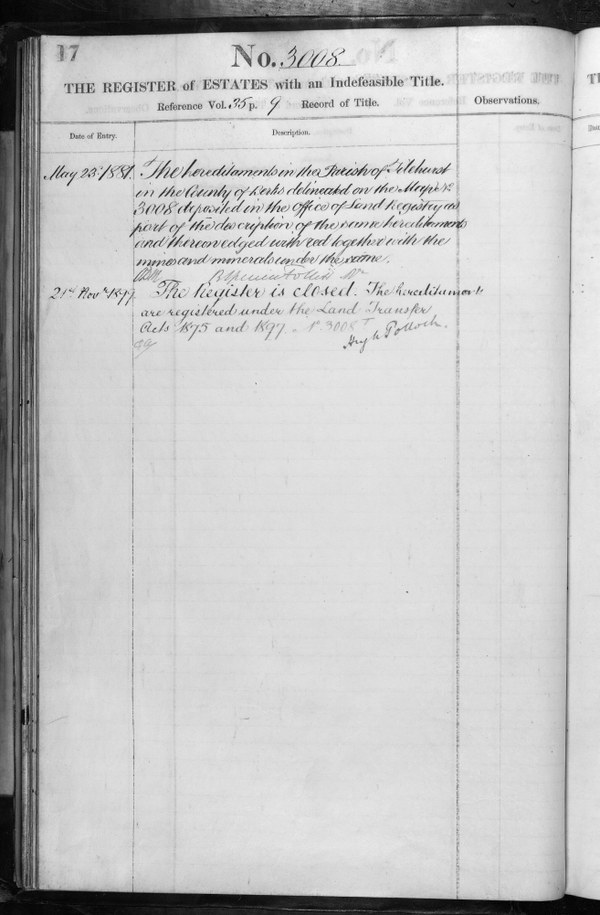 17
No. 3008
THE REGISTER of ESTATES with an Indefeasible Title.
Reference Vol. 35 p. 9 Record of Title.
Observations.
Date of Entry.
Description.
May 23rd 1881. The hereditaments in the Parish of Tilehurst
in the County of Berks delineated on the Map No
3008 deposited in the Office of Land Registry as
part of the description of the same hereditaments
and thereon edged with red together with the
mines and minerals under the same.
21st Novr 1899. The Register is closed. The hereditaments
are registered under the Land Transfer
Acts 1875 and 1897. No 3008
Hugh Pollock.